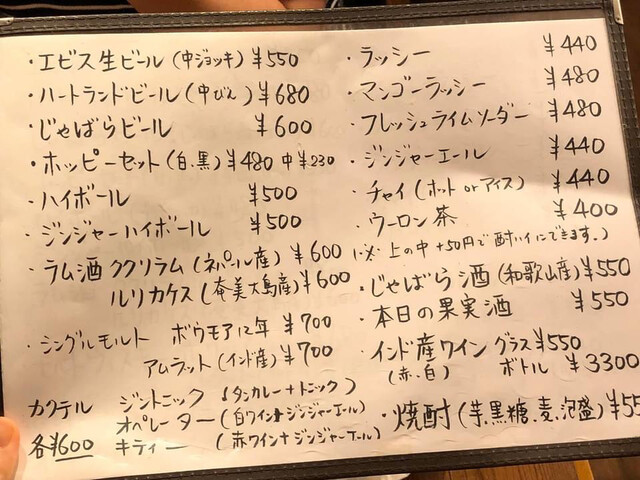 ・エビス生ビール（中ジョッキ）¥550
・ハートランドビール（中びん）¥680
・じゃばらビール ¥600
・ホッピーセット（白、黒）¥480 中¥230
・ハイボール ¥500
・ジンジャーハイボール ¥500
・ラム酒 ククリラム（ネパール産）¥600
ルリカケス（奄美大島産）¥600
・シングルモルト ボウモア12年 ¥700
アムラット（インド産）¥700
カクテル ジントニック（タンカレー＋トニック）
オペレーター（白ワイン＋ジンジャーエール）
各¥600 キティー（赤ワイン＋ジンジャーエール）
・ラッシー ¥440
・マンゴーラッシー ¥480
・フレッシュライムソーダー ¥480
・ジンジャーエール ¥440
・チャイ（ホット or アイス）¥440
・ウーロン茶 ¥400
（※上の中+50円で酎ハイにできます。）
・じゃばら酒（和歌山産）¥550
・本日の果実酒 ¥550
・インド産ワイン グラス¥550
（赤、白） ボトル ¥3300
・焼酎（芋、黒糖、麦、泡盛）¥55